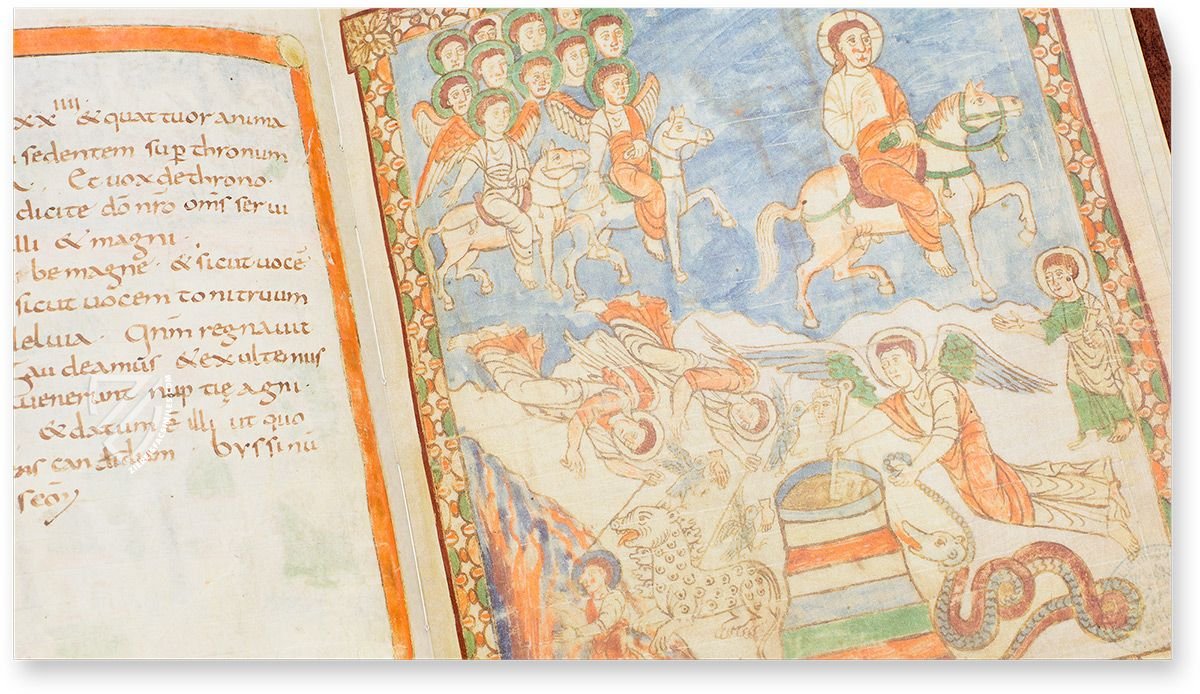 xx IIII · & quattuor anima
sedentem sup thronum
Et vox de throno ·
dicite dōo nr̄o om̄s serui
illi & magni ·
be magne · & sicut uocē
sicut uocem tonitruum
leluia · Qm̄ regnauit
Gau deamus & exultemus
uenerunt nup tię agni ·
& datum ē illi ut quo
candidum · byssinū
scōꝝ